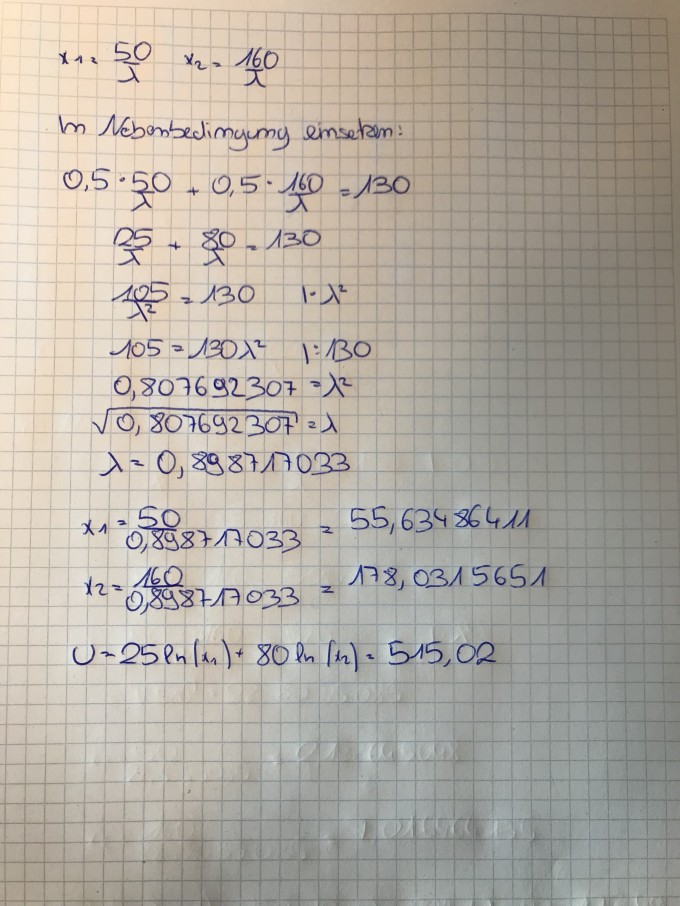 x1 = 50/λ x2 = 160/λ
In Nebenbedingung einsetzen:
0,5 · 50/λ + 0,5 · 160/λ = 130
25/λ + 80/λ = 130
105/λ² = 130 | · λ²
105 = 130λ² | : 130
0,807692307 = λ²
√0,807692307 = λ
λ = 0,898717033
x1 = 50/0,898717033 = 55,63486411
x2 = 160/0,898717033 = 178,0315651
U = 25 ln(x1) + 80 ln(x2) = 515,02